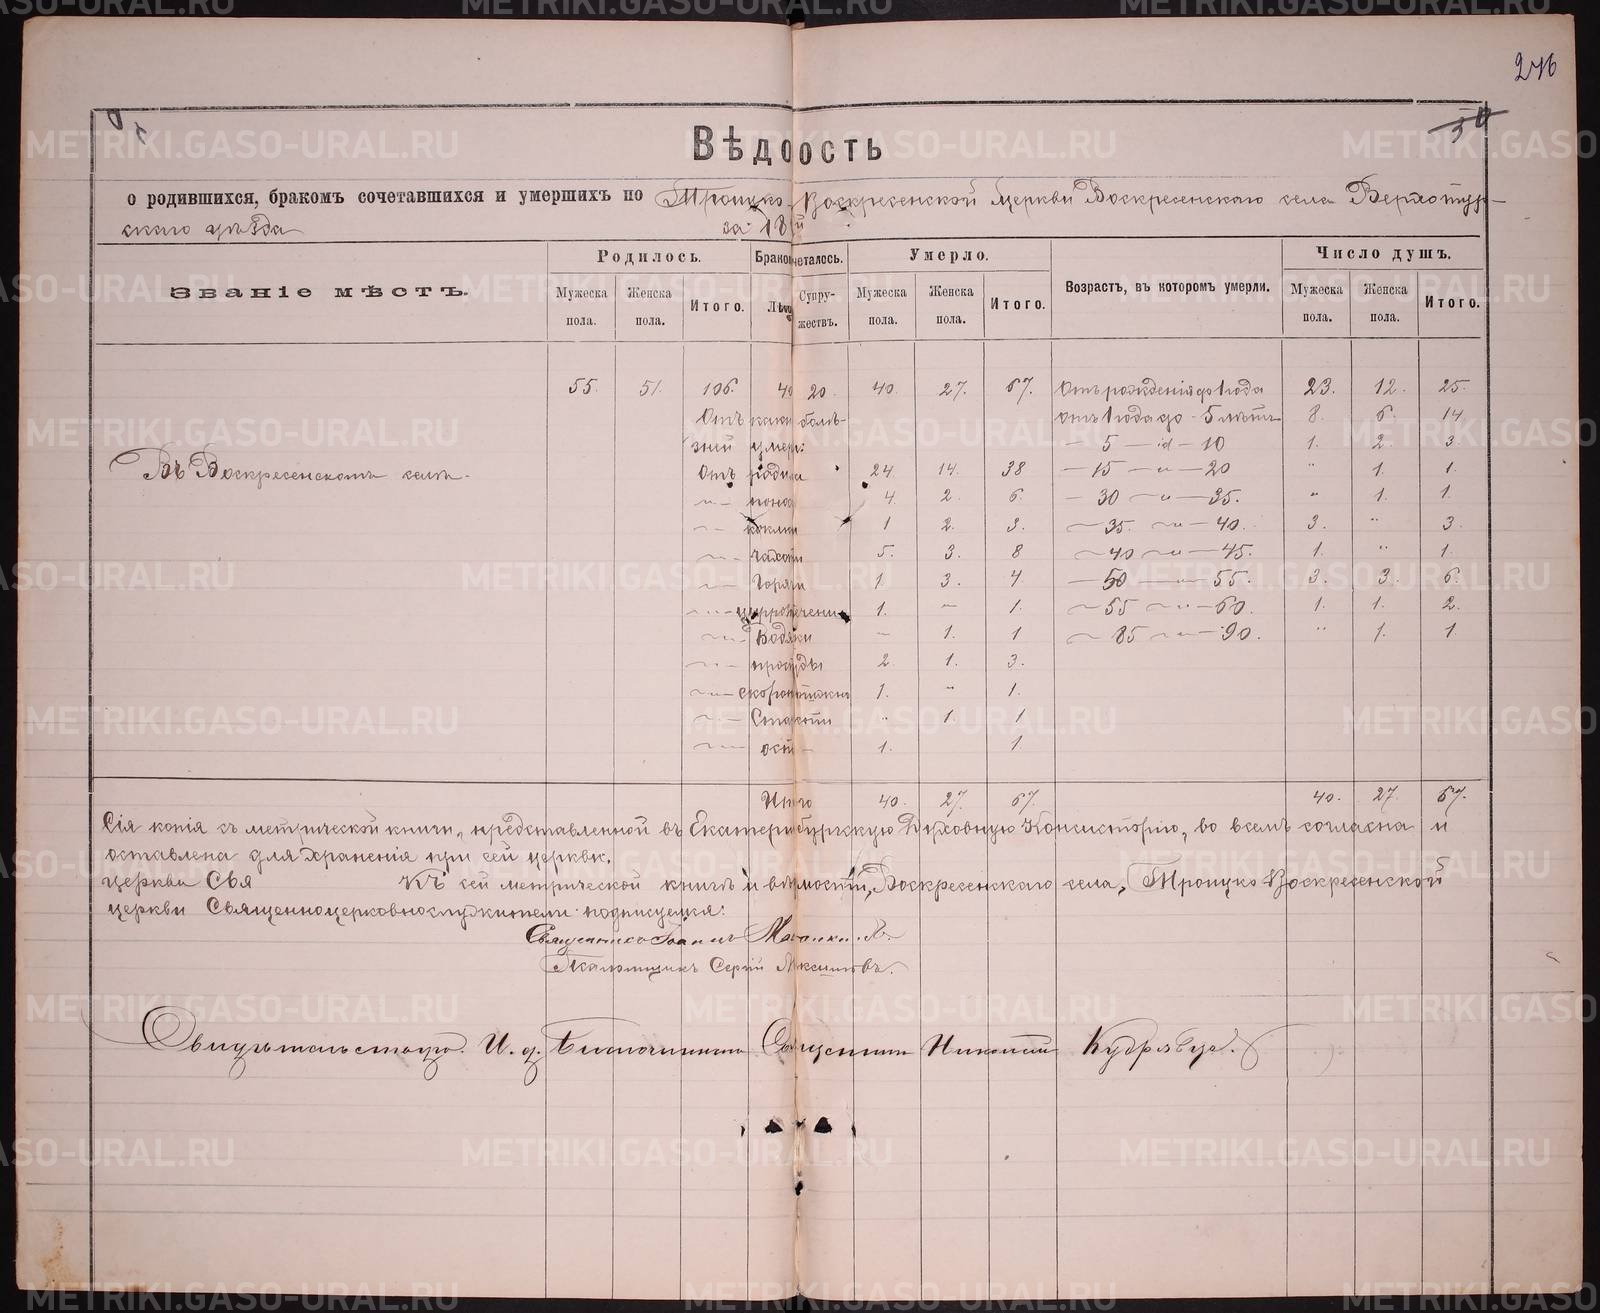 246
Вѣдоость
о родившихся, бракомъ сочетавшихся и умершихъ по Троицко-Воскресенской церкви Воскресенскаго села Верхотур-
скаго уѣзда за 18
Званіе мѣстъ. Родилось. Брако четалось. Умерло. Возрастъ, въ котором умерли. Число душъ.
Мужеска пола. Женска пола. Итого. Супружествъ. Мужеска пола. Женска пола. Итого. Мужеска пола. Женска пола. Итого.
55. 51. 106. 40 20 40. 27. 67. Отъ рожденія до 1 года 23. 12. 25.
Отъ каки болѣ- отъ 1 года до 5 лѣтъ 8. 6. 14
зней умер: — 5 — id — 10 1. 2. 3.
Въ Воскресенскомъ селѣ. Отъ родим 24 14. 38 — 15 — „ — 20 „ 1. 1.
— „ — понос 4. 2. 6. — 30 — „ — 35. „ 1. 1.
— „ — коклю 1 2. 3. — 35. — „ — 40. 3. „ 3.
— „ — чахот 5. 3. 8 — 40 — „ — 45. 1. „ 1.
— „ — Горяч 1 3. 4. — 50 — „ — 55. 3. 3. 6.
— „ — 1. — 1. — 55 — „ — 60. 1. 1. 2.
— „ — Водян — 1. 1 — 85 — „ — 90. „ 1. 1
— „ — простуды 2. 1. 3.
— „ — скоропостижно 1. „ 1.
— „ — „ 1. 1
— „ — осп — 1. 1.
Итого 40. 27. 67. 40. 27. 67.
Сія копія съ метрической книги, представленной въ Екатеринбургскую Духовную Консисторію, во всемъ согласна и
оставлена для храненія при сей церкви.
церкви Свя Къ сей метрической книгѣ и вѣдмости, Воскресенскаго села, Троицко Воскресенской
церкви Священноцерковнослужители подписуемся:
Священникъ Іоаннъ
Псаломщикъ Сергій Максимовъ.
Свидѣтельствовалъ И. д. Благочиннаго Священникъ Николай Кудрявцев.
METRIKI.GASO-URAL.RU